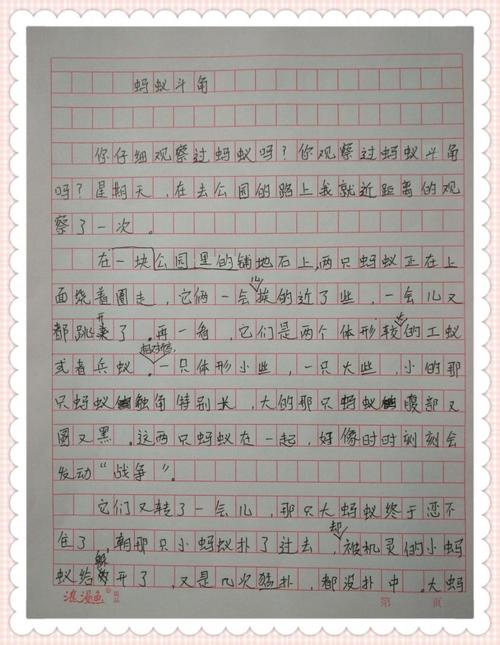 蚂蚁斗角
你仔细观察过蚂蚁吗？你观察过蚂蚁斗角
吗？星期天，在去公园的路上我就近距离的观
察了一次。
在一块公园里的铺地石上，两只蚂蚁正在上
面绕着圈走，它俩一会儿挨的近了些，一会儿又
都跳开了。再一看，它们是两个体形较大的工蚁
或者兵蚁。相对信，一只体形小些，一只大些，小的那
只蚂蚁触角特别长，大的那只蚂蚁腹部又
圆又黑。这两只蚂蚁在一起，好像时时刻刻会
发动“战争”。
它们又转了一会儿，那只大蚂蚁终于忍不
住了，朝那只小蚂蚁扑了过去，却被机灵的小蚂
蚁给躲开了，又是几次猛扑，都没扑中，大蚂
浪漫鱼
第 页